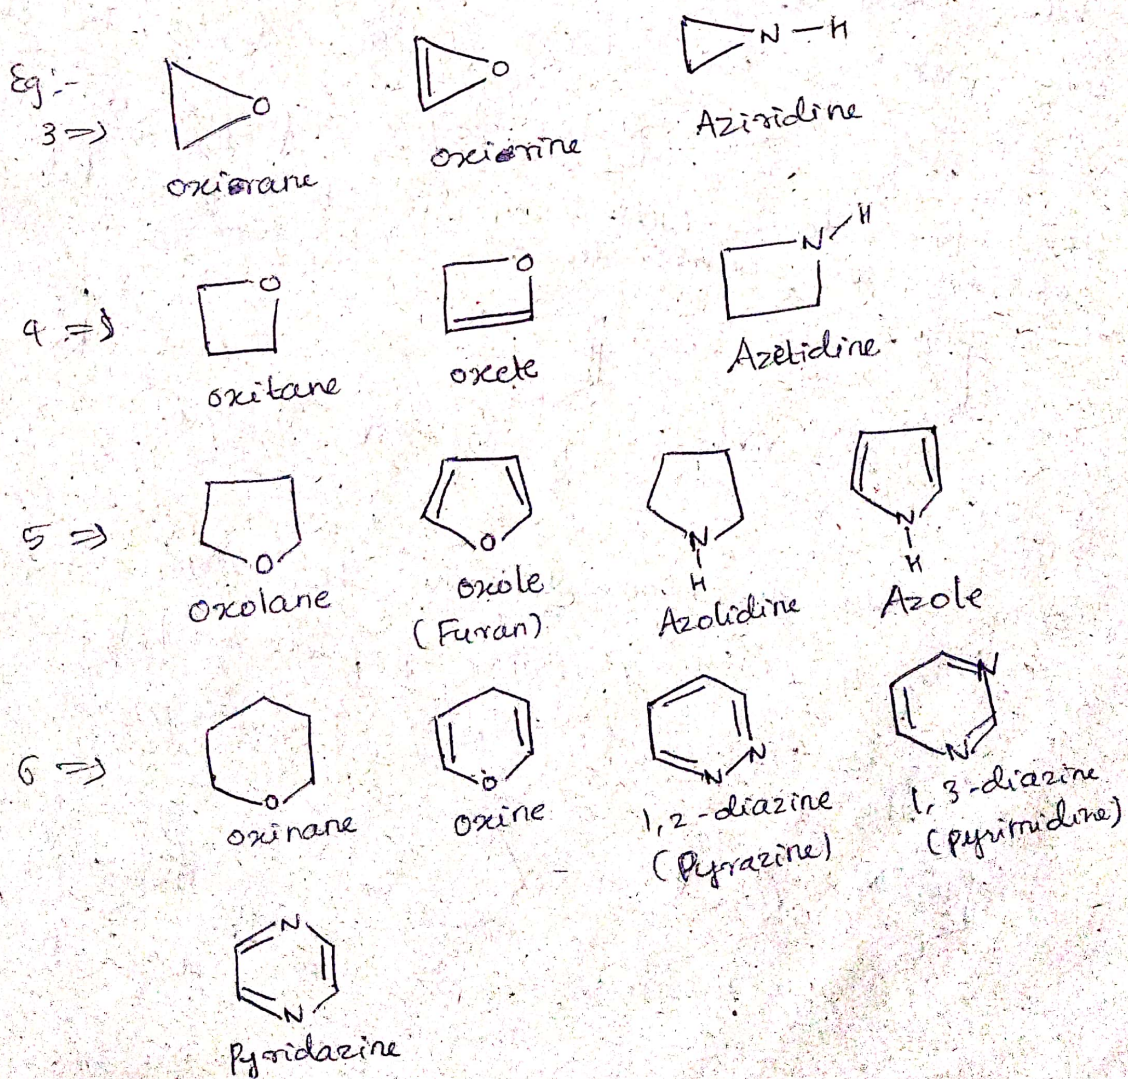 Eg:-
3 =>
O
oxiorane
O
oxiorine
N - H
Aziridine
4 =>
O
oxitane
O
oxete
N
H
Azetidine
5 =>
O
oxolane
O
oxole
(Furan)
N
H
Azolidine
N
H
Azole
6 =>
O
oxinane
O
oxine
N
N
1,2-diazine
(Pyrazine)
N
N
1,3-diazine
(pyrimidine)
N
N
Pyridazine